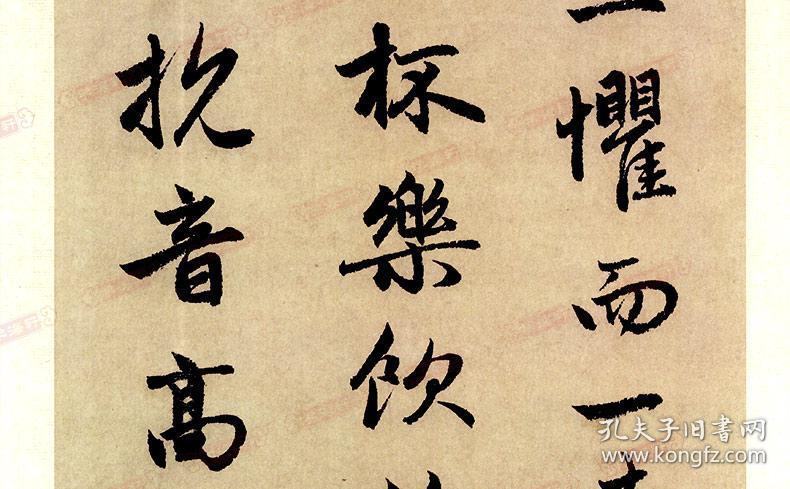 一懼而一
杯樂飲
抗音高
孔夫子旧书网
www.kongfz.com